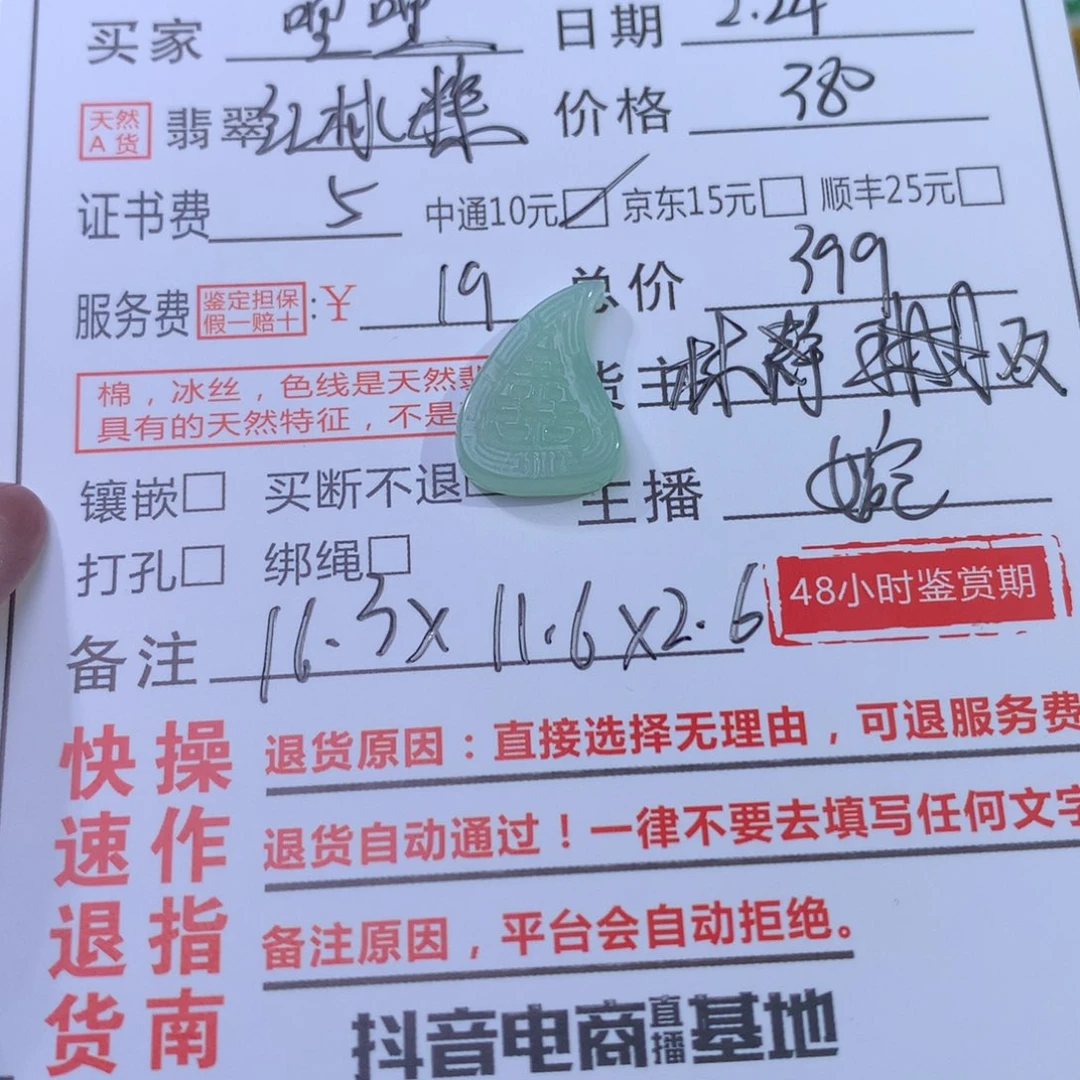 买家 日期 2.24
天然A货 翡翠 红桃粿 价格 380
证书费 5 中通10元 京东15元 顺丰25元
服务费 鉴定担保 假一赔十 :¥ 19 总价 399
棉，冰丝，色线是天然翡
具有的天然特征，不是
货主
镶嵌 买断不退 主播 婉
打孔 绑绳
48小时鉴赏期
备注 16.3X 11.6X2.6
快速退货 操作指南
退货原因：直接选择无理由，可退服务费
退货自动通过！一律不要去填写任何文字
备注原因，平台会自动拒绝。
抖音电商直播基地